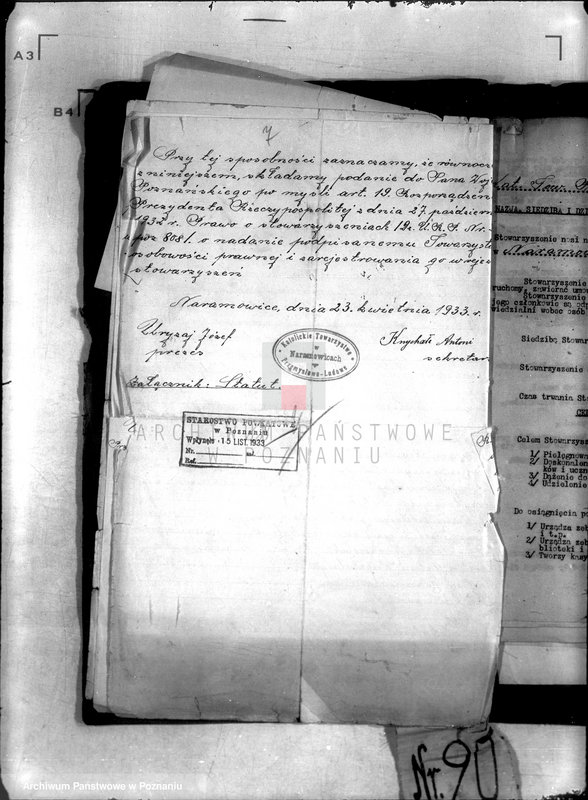 A3
B4
7
Przy tej sposobności zaznaczamy, że równocz
z niniejszem, składamy podanie do Pana Woj
Poznańskiego po myśli art. 19. Rozporządzen
Prezydenta Rzeczypospolitej z dnia 27. październ
1932 r. Prawo o stowarzyszeniach Nr.
poz. 808/. o nadanie podpisanemu Towarzyst
osobowości prawnej i zarejestrowania go w reje
stowarzyszeń
Naramowice, dnia 23. kwietnia 1933. r.
Józef
prezes
Katolickie Towarzystwo
w
Naramowicach
Przemysłowo-Ludowe
Antoni
sekretar
Załącznik: Statut.
STAROSTWO POWIATOWE
w Poznaniu
Wpłynęło 15 LIST. 1933
Nr.
Ref.
ARCHIWUM PAŃSTWOWE
W POZNANIU
NAZWA, SIEDZIBA I
Stowarzyszenie nosi n
w Naramow
Stowarzyszenie
ruchomy, zawierać umo
Stowarzyszenie
jego członkowie są odp
wiedzialni wobec osób
Siedzibą Stowar
Stowarzyszenie
Czas trwania Stow
Celem Stowarzysz
1/ Pielęgnowa
2/ Doskonalen
ków i uczn
3/ Dążenie do
4/ Udzielenie
Do osiągnięcia po
1/ Urządza zeb
i t.p.
2/ Urządza zeb
blioteki i
3/ Tworzy kasy
Nr. 90
Archiwum Państwowe w Poznaniu